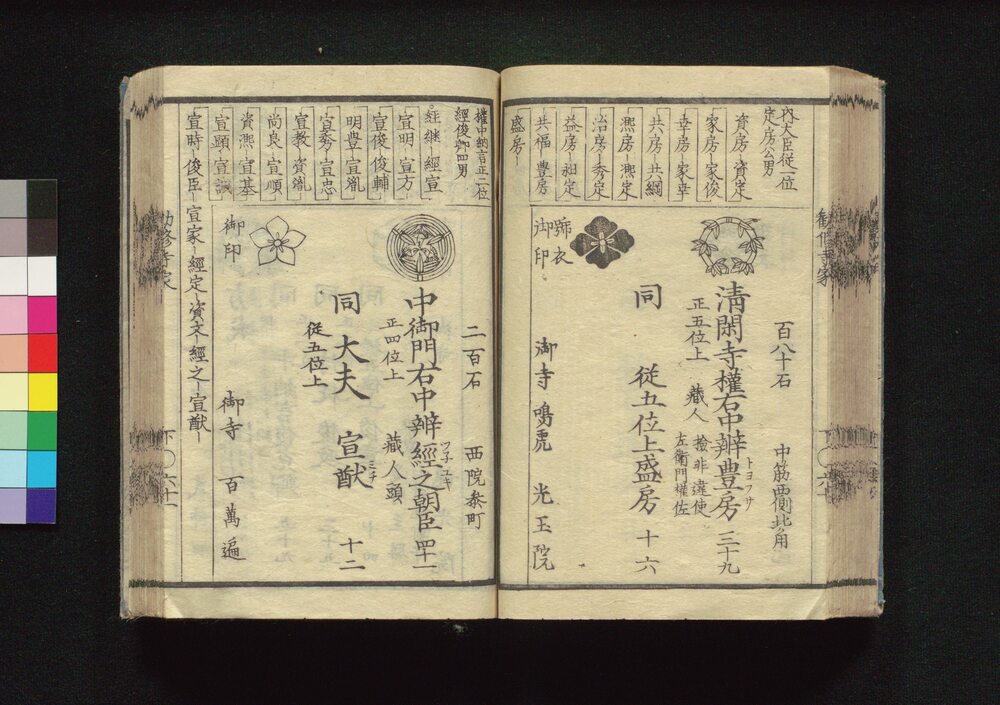 勧修寺家
下〇六十
内大臣従一位
定房公男
資房－資定
家房－家俊
幸房－家幸
共房－共綱
凞房－凞定
治房－秀定
益房－昶定
共福 豊房
盛房－
百八十石 中筋西側北角
清閑寺権右中辨豊房 三十九
トヨフサ
正五位上 蔵人 検非違使
左衛門権佐
同 従五位上盛房 十六
号衣
御印
御寺 鳴虎 光玉院
権中納言正二位
経俊卿四男
経継 経宣
宣明 宣方
宣俊 俊輔
明豊 宣胤
宣秀 宣忠
宣教 資胤
尚良 宣順
資凞 宣基
宣顕 宣誠
宣時－俊臣－宣家－経定－資文－経之－宣猷－
二百石 西院参町
中御門右中辨経之朝臣 四十一
ツ子ユキ
正四位上 蔵人頭
同 大夫 宣猷 十二
従五位上
御印
御寺 百萬遍
勧修寺家
下〇六十一